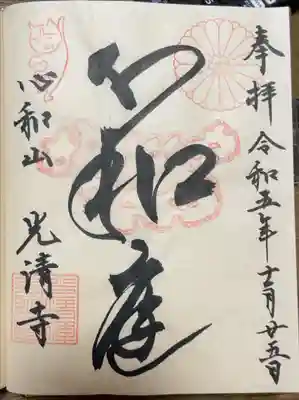 奉拝 令和五年十二月廿五日
心和庭
心和山 光清寺